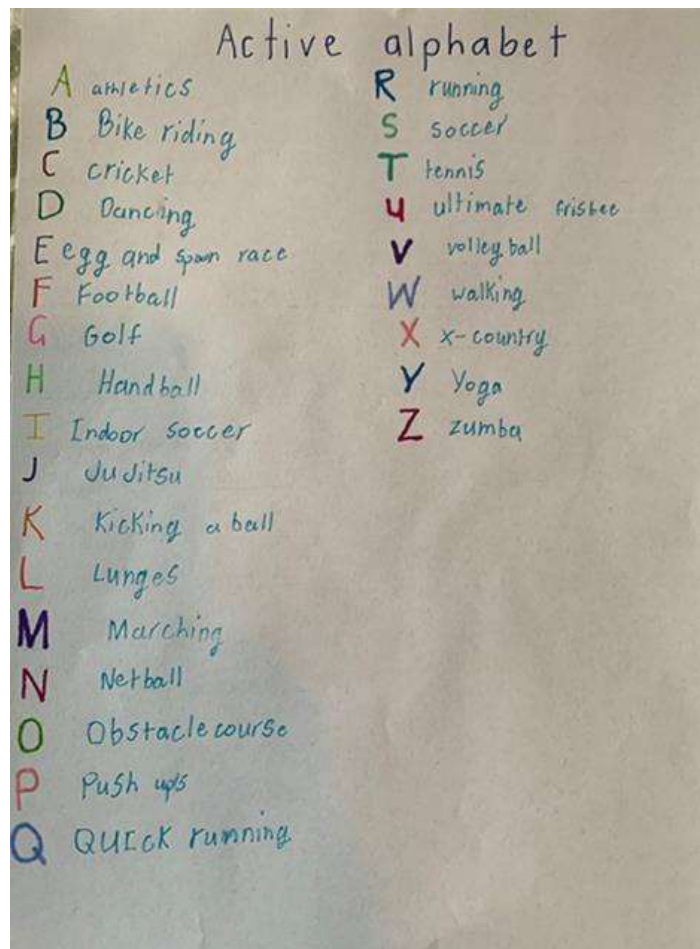 Active alphabet
A athletics
B Bike riding
C cricket
D Dancing
E egg and spoon race
F Football
G Golf
H Handball
I Indoor soccer
J Ju Jitsu
K Kicking a ball
L Lunges
M Marching
N Netball
O Obstacle course
P Push ups
Q QUICK running
R running
S soccer
T tennis
U ultimate frisbee
V volleyball
W walking
X x-country
Y Yoga
Z zumba